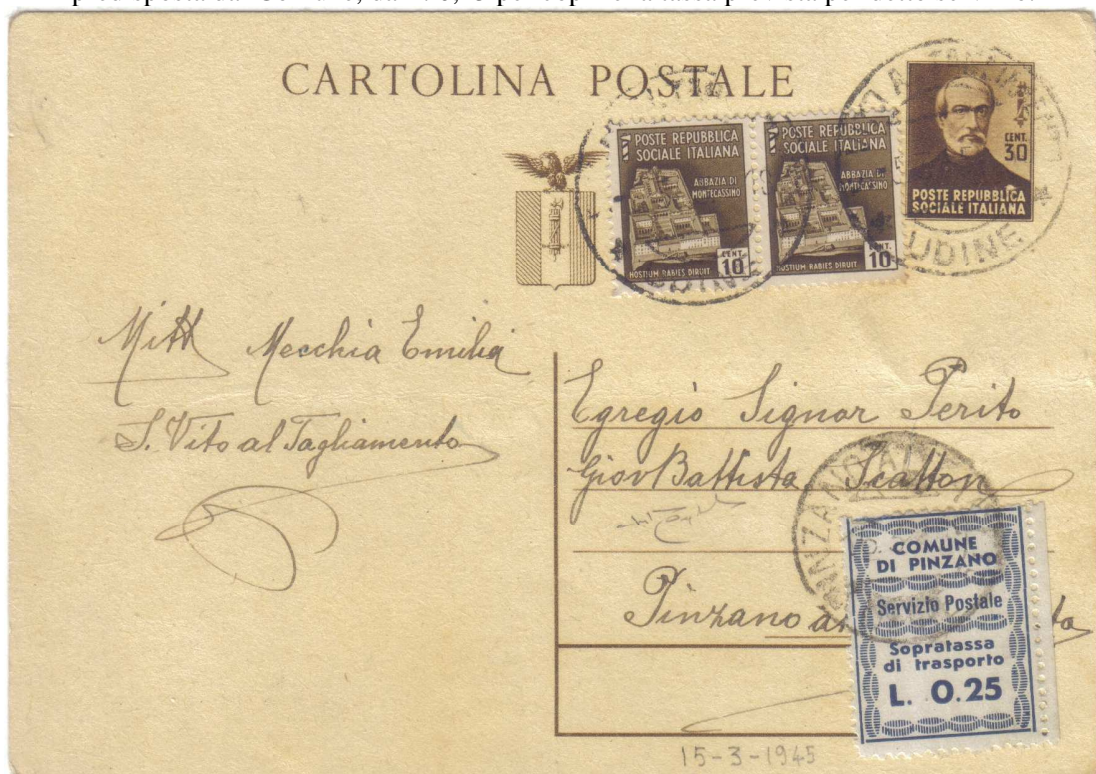 CARTOLINA POSTALE
POSTE REPUBBLICA
SOCIALE ITALIANA
ABBAZIA DI
MONTECASSINO
CENT.
10
HOSTIUM RABIES DIRUIT
POSTE REPUBBLICA
SOCIALE ITALIANA
ABBAZIA DI
MONTECASSINO
CENT.
10
HOSTIUM RABIES DIRUIT
CENT.
30
POSTE REPUBBLICA
SOCIALE ITALIANA
UDINE
UDINE
Mitt Mecchia Emilia
S. Vito al Tagliamento
Egregio Signor Perito
Giov Battista Scatton
Pinzano a
COMUNE
DI PINZANO
Servizio Postale
Sopratassa
di trasporto
L. 0.25
15-3-1945